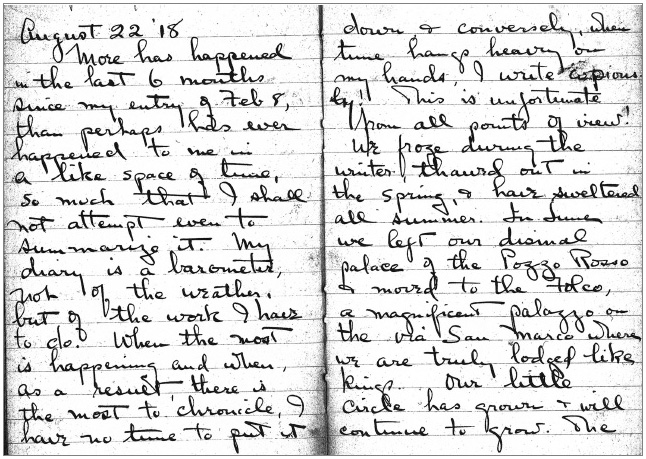 August 22 '18
More has happened
in the last 6 months
since my entry of Feb 8,
than perhaps has ever
happened to me in
a like space of time,
so much that I shall
not attempt even to
summarize it. My
diary is a barometer,
not of the weather,
but of the work I have
to do. When the most
is happening and when,
as a result, there is
the most to chronicle, I
have no time to put it
down & conversely, when
time hangs heavy on
my hands, I write copious
ly! This is unfortunate
from all points of view!
We froze during the
winter thawed out in
the spring, & have sweltered
all summer. In June
we left our dismal
palace of the Pozzo Rosso
& moved to the Folco,
a magnificent palazzo on
the via San Marco where
we are truly lodged like
kings. Our little
circle has grown & will
continue to grow. The